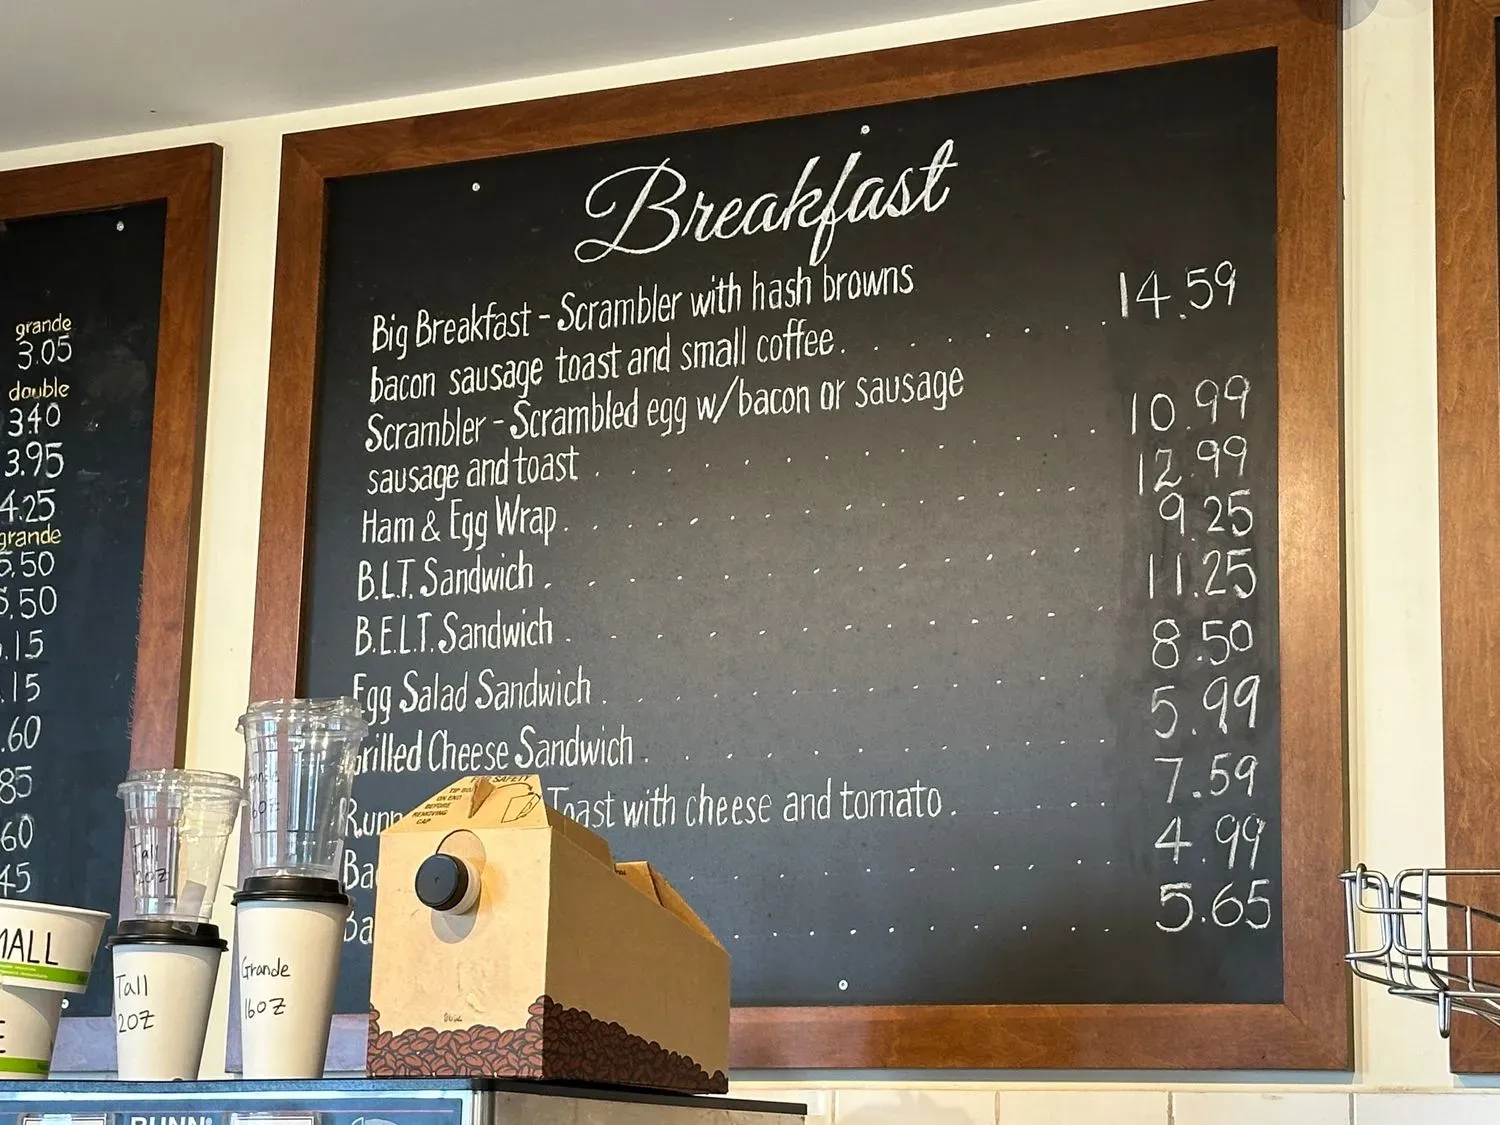 grande
3.05
double
3.40
3.95
4.25
grande
5.50
5.50
.15
.15
.60
85
60
45
Breakfast
Big Breakfast - Scrambler with hash browns
bacon sausage toast and small coffee . . . . . . 14.59
Scrambler - Scrambled egg w/bacon or sausage
sausage and toast . . . . . . . . . . 10.99
Ham & Egg Wrap . . . . . . . . . . 12.99
B.L.T. Sandwich . . . . . . . . . . 9.25
B.E.L.T. Sandwich . . . . . . . . . . 11.25
Egg Salad Sandwich . . . . . . . . . . 8.50
Grilled Cheese Sandwich . . . . . . . . . . 5.99
Toast with cheese and tomato . . . . . 7.59
4.99
5.65
FOR SAFETY
TIP BOX
ON END
BEFORE
REMOVING
CAP
Tall
Grande
16OZ
Tall
12OZ
MALL
BUNN